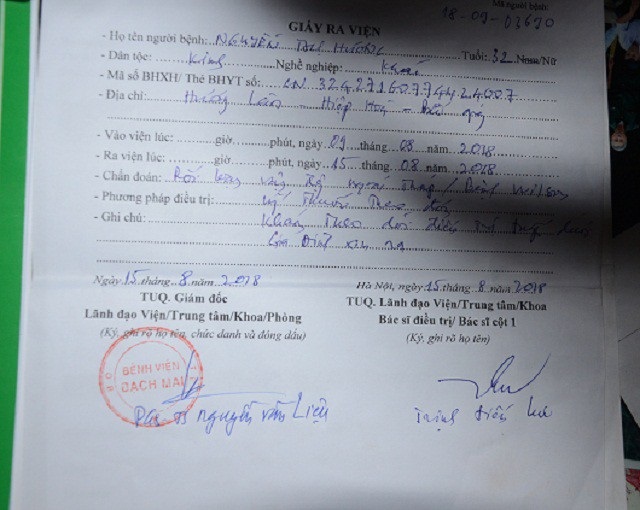 Mã người bệnh:
18-09-03620
GIẤY RA VIỆN
- Họ tên người bệnh: NGUYỄN THỊ HƯƠNG Tuổi: 32 Nam/Nữ
- Dân tộc: Kinh Nghề nghiệp: Khác
- Mã số BHXH/ Thẻ BHYT số: CN 3242716077424007
- Địa chỉ: Hương Lâm Hiệp Hoà - Bắc Giang
- Vào viện lúc: giờ phút, ngày 09 tháng 08 năm 2018
- Ra viện lúc: giờ phút, ngày 15 tháng 08 năm 2018
- Chẩn đoán: Rối loạn vận động ngoại tháp / Bệnh Wilson
- Phương pháp điều trị: thuốc theo
- Ghi chú: Không theo dõi điều trị
Gia đình xin ra
Ngày 15 tháng 8 năm 2018
TUQ. Giám đốc
Lãnh đạo Viện/Trung tâm/Khoa/Phòng
(Ký, ghi rõ họ tên, chức danh và đóng dấu)
Hà Nội, ngày 15 tháng 8 năm 2018
TUQ. Lãnh đạo Viện/Trung tâm/Khoa
Bác sĩ điều trị/ Bác sĩ cột 1
(Ký, ghi rõ họ tên)
BỆNH VIỆN
BẠCH MAI
PGS TS Nguyễn Văn Liệu
Trịnh Tiến Lực